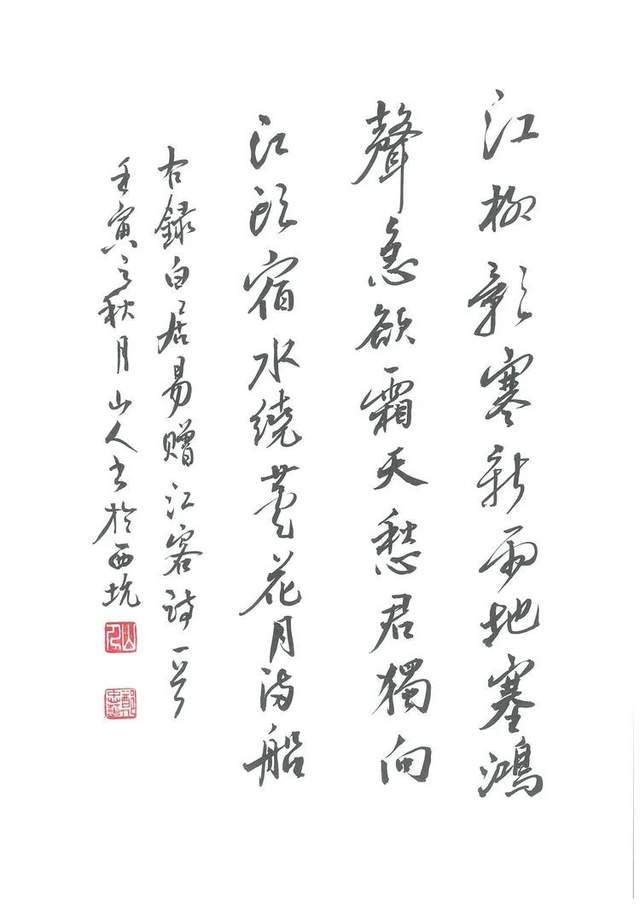 江柳影寒新雨地塞鴻
聲急欲霜天愁君獨向
江頭宿水繞蘆花月滿船
右録白居易贈江客詩一首
壬寅之秋月山人書於西坑
山人